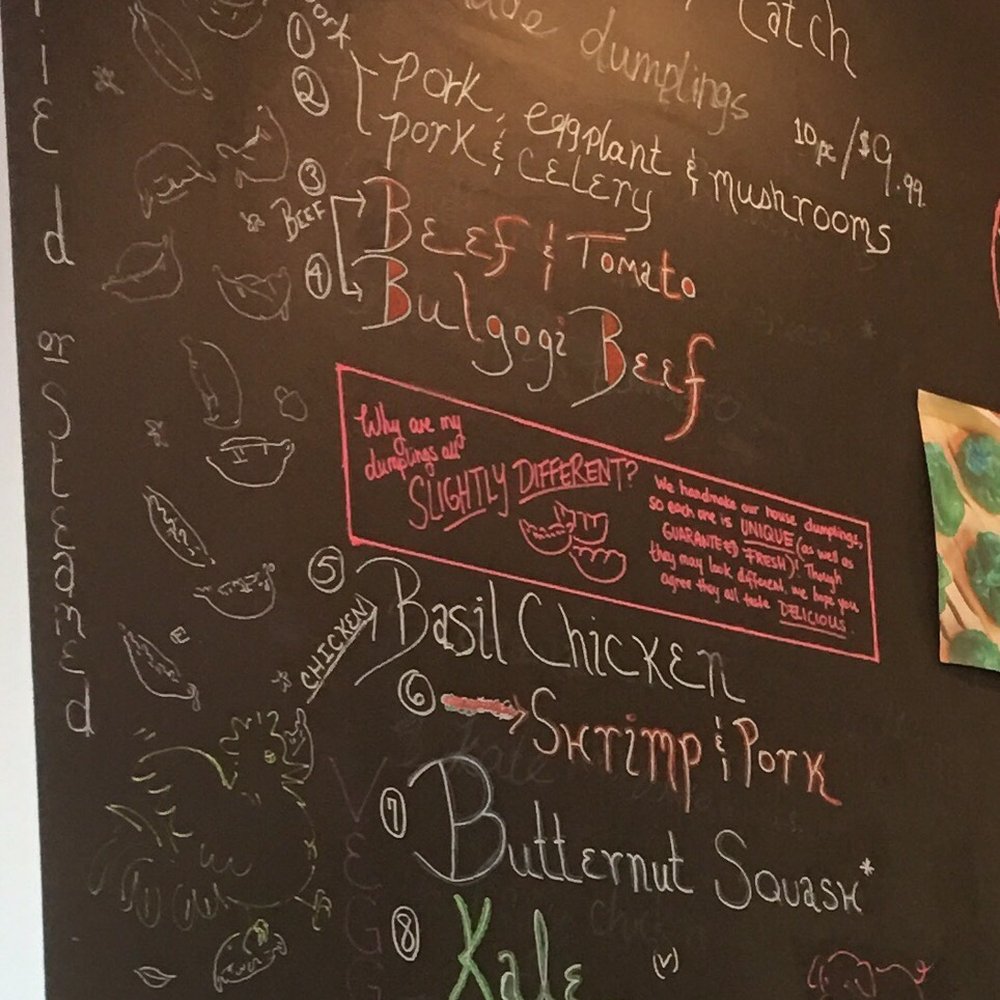 Catch
dumplings
10pc/$9.99
Pork
① Pork, eggplant & mushrooms
② Pork & Celery
Beef
③ Beef & Tomato
④ Bulgogi Beef
Why are my
dumplings all
SLIGHTLY DIFFERENT?
We handmake our house dumplings,
so each one is UNIQUE (as well as
GUARANTEED FRESH)! Though
they may look different, we hope you
agree they all taste DELICIOUS.
CHICKEN
⑤ Basil Chicken
⑥ Shrimp & Pork
⑦ Butternut Squash*
⑧ Kale (v)
or Steamed
VEGG